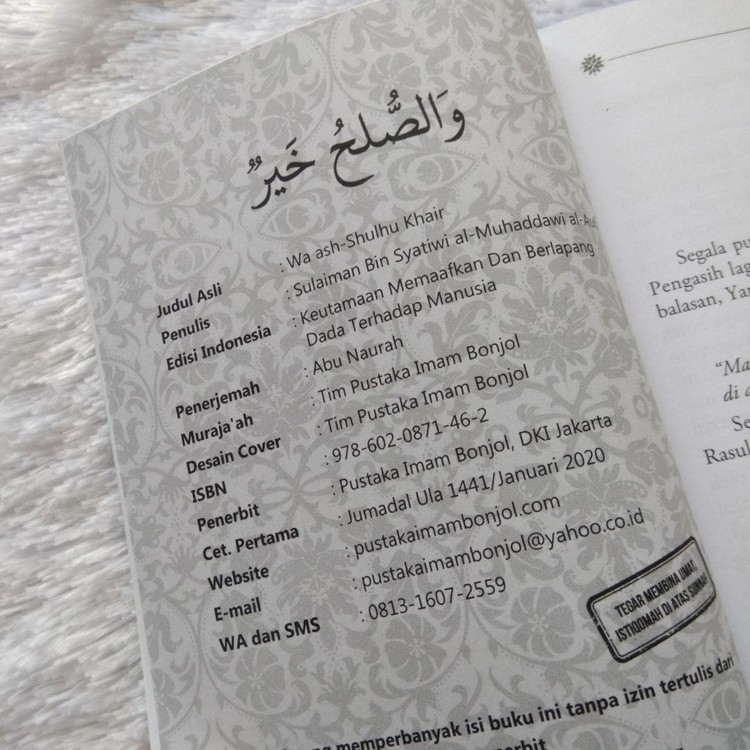 وَالصُّلحُ خَيرٌ
Judul Asli : Wa ash-Shulhu Khair
Penulis : Sulaiman Bin Syatiwi al-Muhaddawi
Edisi Indonesia : Keutamaan Memaafkan Dan Berlapang
Dada Terhadap Manusia
Penerjemah : Abu Naurah
Muraja'ah : Tim Pustaka Imam Bonjol
Desain Cover : Tim Pustaka Imam Bonjol
ISBN : 978-602-0871-46-2
Penerbit : Pustaka Imam Bonjol, DKI Jakarta
Cet. Pertama : Jumadal Ula 1441/Januari 2020
Website : pustakaimambonjol.com
E-mail : pustakaimambonjol@yahoo.co.id
WA dan SMS : 0813-1607-2559
TEGAR MEMBINA UMAT,
ISTIQOMAH DI ATAS SUNNAH
memperbanyak isi buku ini tanpa izin tertulis dari
Segala
Pengasih
balasan,
di